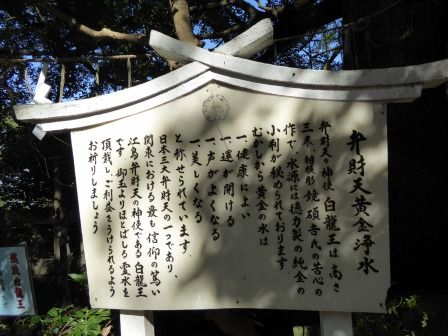 弁財天黄金浄水
弁財天の神使 白龍王は 高さ
三米 雛模形 鏡碩吉氏の苦心の
作で、水源には徳力製の純金の
小判が秘められております
むかしから 黄金の水は
一、健康によい
一、運が開ける
一、声がよくなる
一、美しくなる
と称せられています。
日本三大弁財天の一つであり、
関東における最も信仰の篤い
江島弁財天の神使である 白龍王
です 御玉よりほとばしる 霊水を
頂戴し、ご利益をうけられるよう
お祈りしましょう
龍王